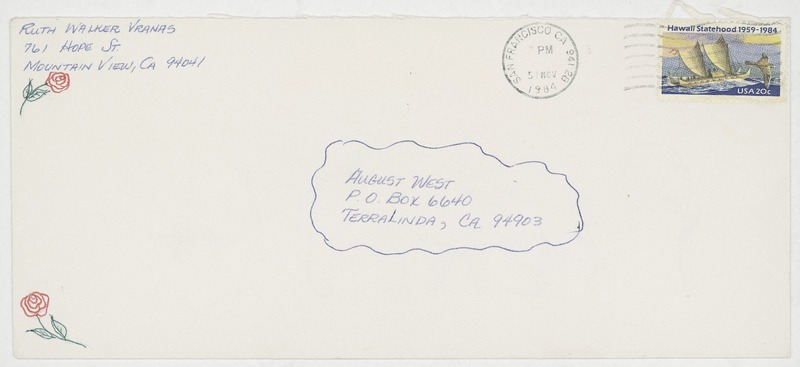 Ruth Walker Vranas
761 Hope St.
Mountain View, CA 94041
SAN FRANCISCO CA 941 2B
PM
NOV
1984
Hawaii Statehood 1959-1984
USA 20c
August West
P.O. Box 6640
TerraLinda, CA 94903